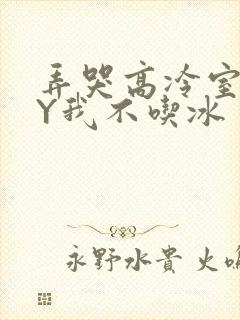 弄哭高冷室
Y我不喫冰
永野水貴 火